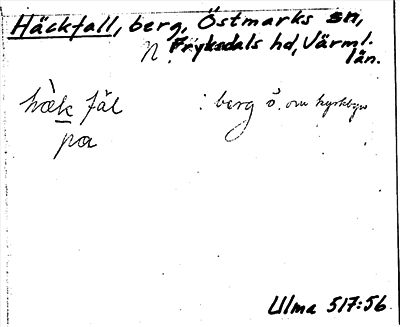 Häckfall, berg, Östmarks sn,
N. Fryksdals hd, Värml.
län.
hæ̀k fäl : berg ö. om kyrkbyn
på
Ulma 517:56